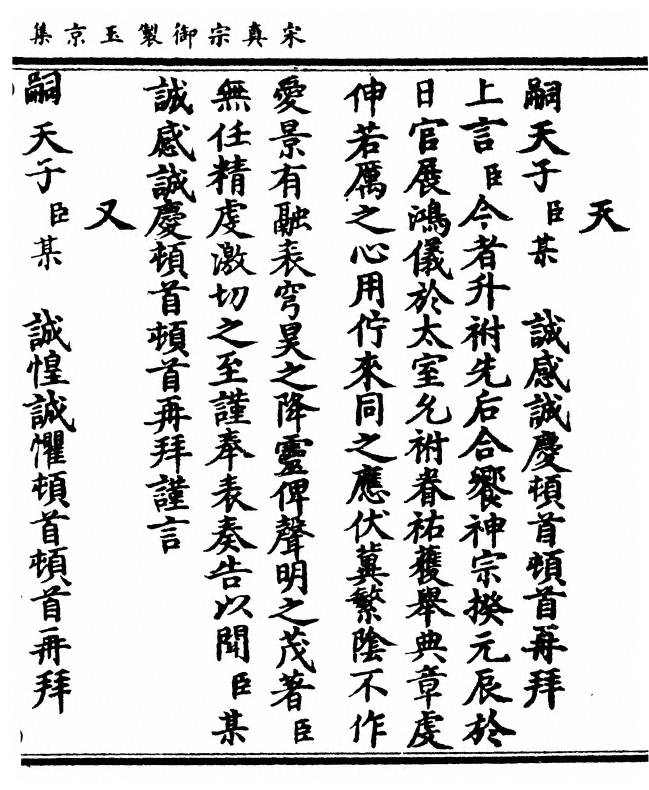 宋真宗御製玉京集
天
嗣天子臣某　誠感誠慶頓首頓首再拜
上言臣今者升祔先后合饗神宗揆元辰於
日官展鴻儀於太室允祔眷祐獲舉典章虔
伸若厲之心用佇來同之應伏冀繁陰不作
愛景有融表穹昊之降靈俾聲明之茂著臣
無任精虔激切之至謹奉表奏告以聞臣某
誠感誠慶頓首頓首再拜謹言
又
嗣天子臣某　誠惶誠懼頓首頓首再拜